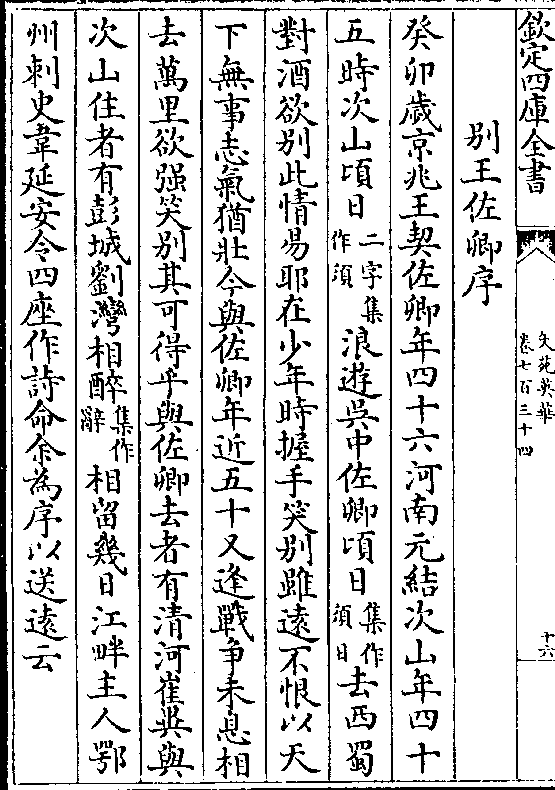 欽定四庫全書
文苑英華
卷七百三十四
十六
別王佐卿序
癸卯歲京兆王契佐卿年四十六河南元結次山年四十
五時次山頃日二字集作須浪遊吳中佐卿頃日集作須日去西蜀
對酒欲別此情易耶在少年時握手笑別雖遠不恨以天
下無事志氣猶壯今與佐卿年近五十又逢戰爭未息相
去萬里欲强笑別其可得乎與佐卿去者有清河崔異與
次山住者有彭城劉灣相醉集作辭相留幾日江畔主人鄂
州刺史韋延安令四座作詩命余為序以送遠云